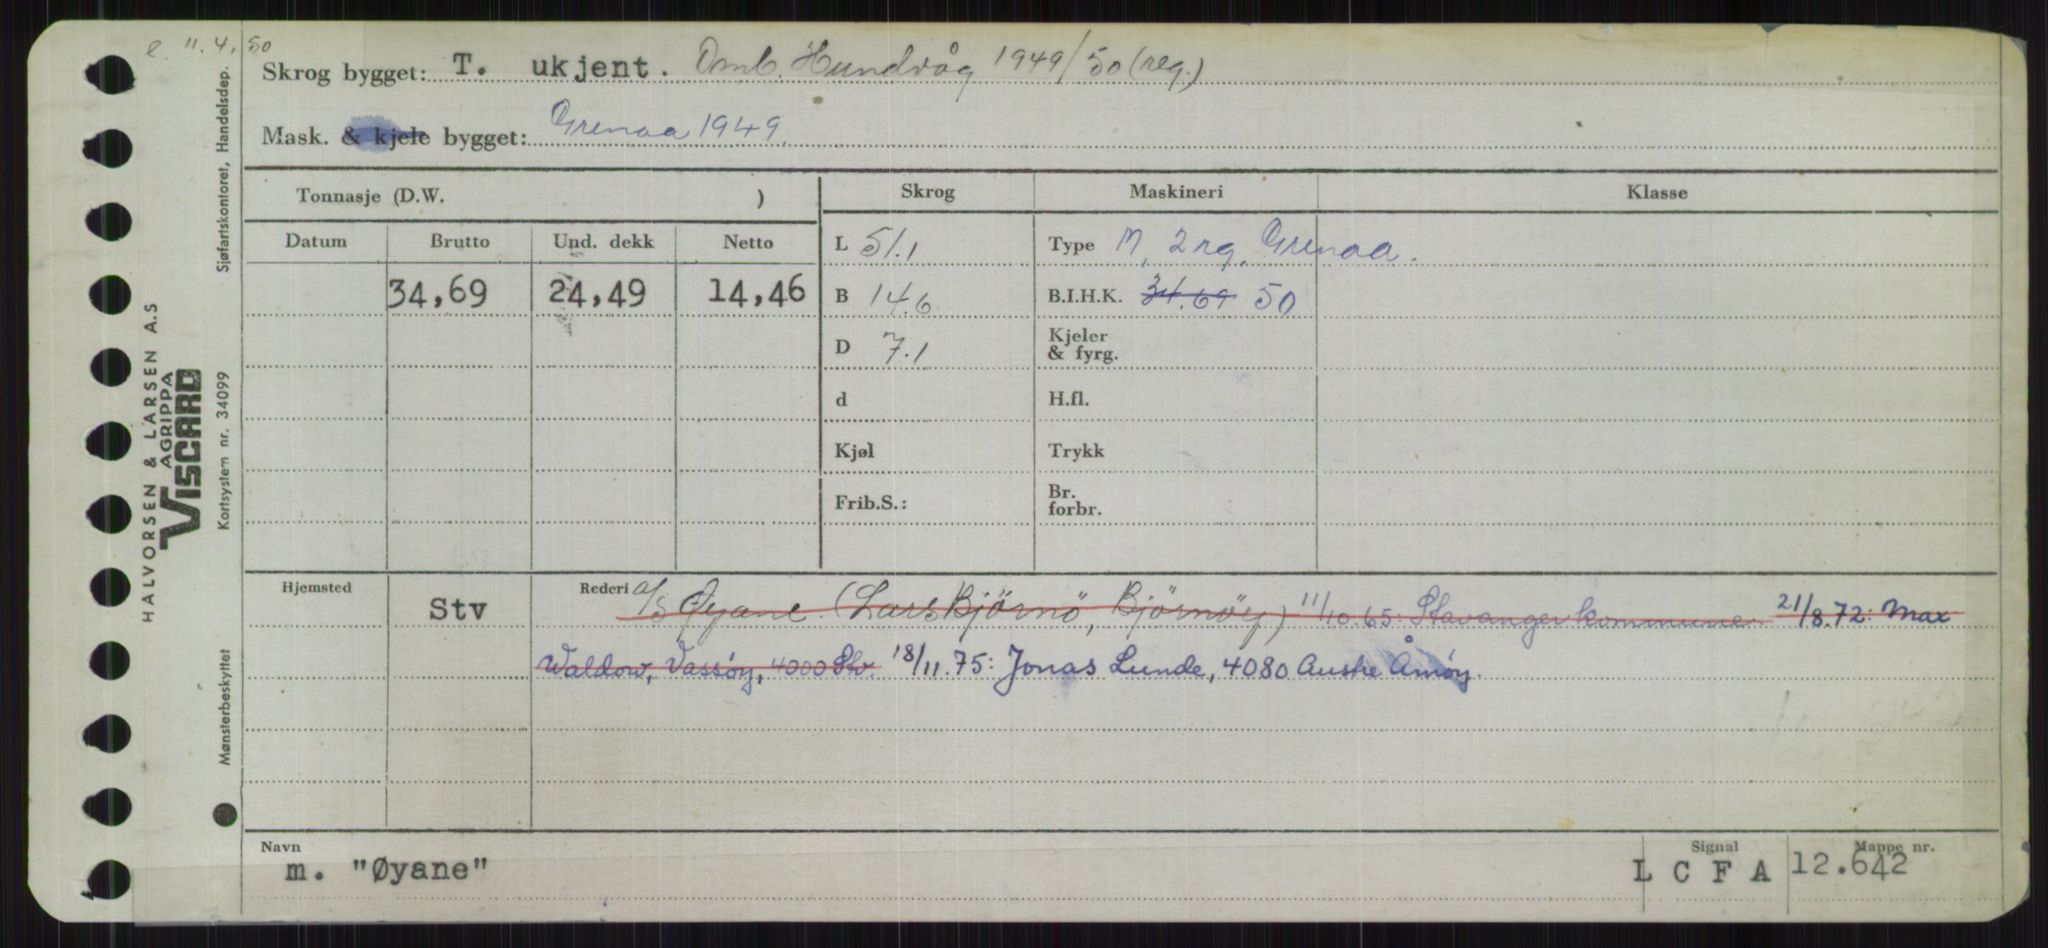 e 11.4.50
Skrog bygget: T. ukjent. Omb. Hundvåg 1949/50 (reg.)
Mask. & kjele bygget: Grenaa 1949.
Tonnasje (D.W. )
Skrog
Maskineri
Klasse
Datum Brutto Und. dekk Netto
34,69 24,49 14,46
L 51.1
B 14.6
D 7.1
d
Kjøl
Frib.S.:
Type M, 2 rg, Grenaa.
B.I.H.K. 34.69 50
Kjeler
& fyrg.
H.fl.
Trykk
Br.
forbr.
Hjemsted Stv
Rederi a/s Øyane (Lars Bjørnö, Bjørnöy) 11/10.65: Stavanger kommune. 21/8.72: Max
Waldow, Vassöy, 4000 Stv. 18/11.75: Jonas Lunde, 4080 Austre Åmöy.
Navn
m. "Øyane"
Signal
L C F A
Mappe nr.
12.642
HALVORSEN & LARSEN A.S
AGRIPPA
VISCARD
Mønsterbeskyttet Kortsystem nr. 34099 Sjøfartskontoret, Handelsdep.